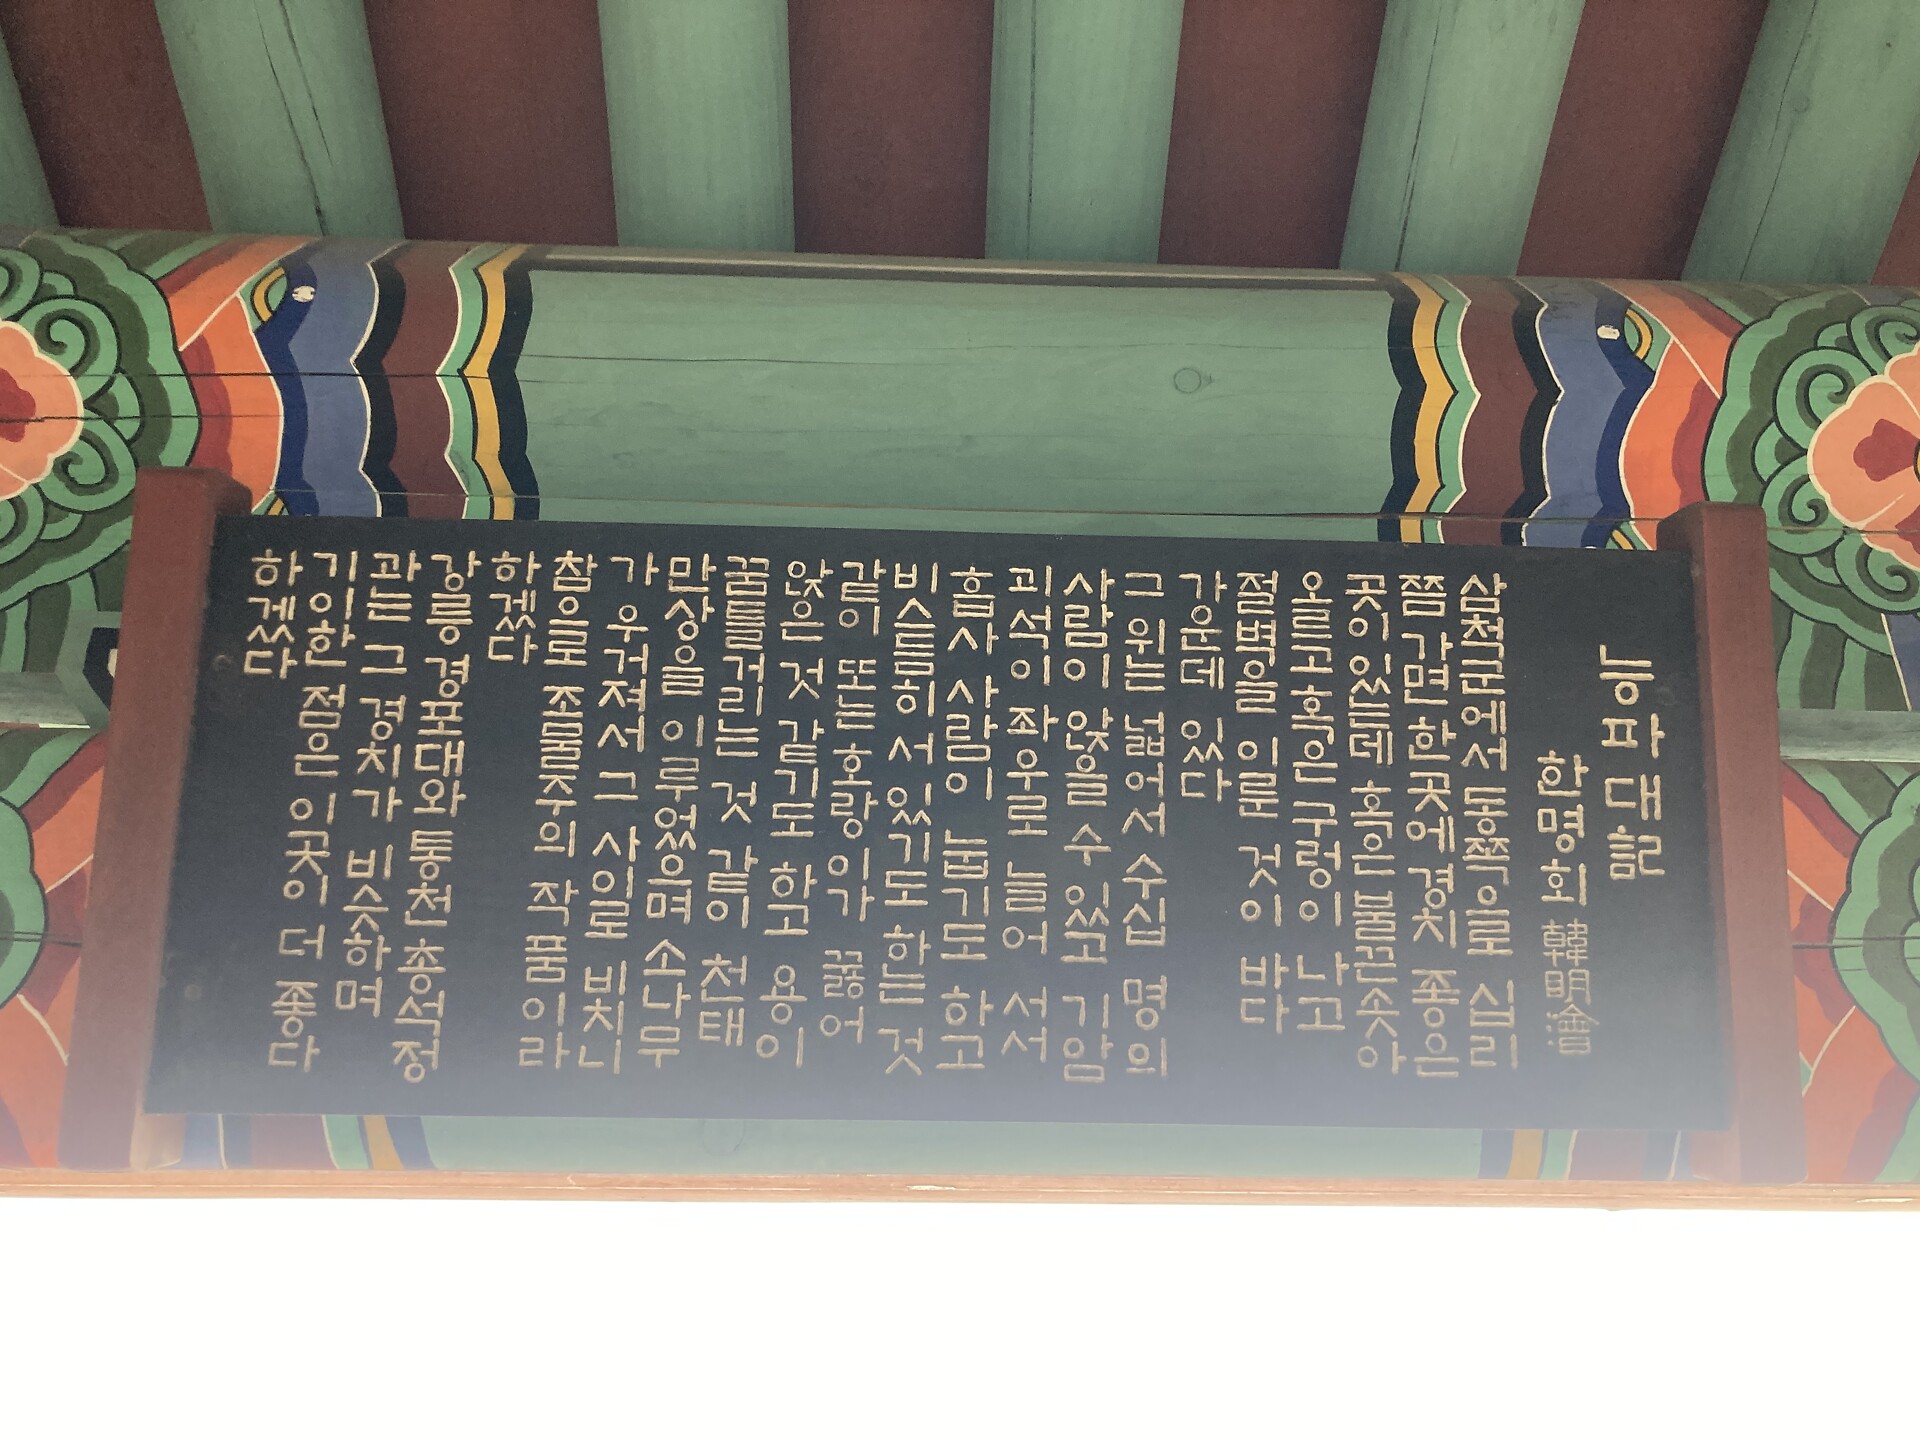 능파대記
한명회 韓明澮
삼척군에서 동쪽으로 십리
쯤 가면 한곳에 경치 좋은
곳이 있는데 혹은 불끈솟아
오르고 혹은 구렁이 나고
절벽을 이룬 것이 바다
가운데 있다
그 위는 넓어서 수십 명의
사람이 앉을 수 있고 기암
괴석이 좌우로 늘어 서서
흡사 사람이 눕기도 하고
비스듬히 서 있기도 하는 것
같이 또는 호랑이가 꿇어
앉은 것 같기도 하고 용이
꿈틀거리는 것 같이 천태
만상을 이루었으며 소나무
가 우거져서 그 사이로 비치니
참으로 조물주의 작품이라
하겠다
강릉 경포대와 통천 총석정
과는 그 경치가 비슷하며
기이한 점은 이곳이 더 좋다
하겠다